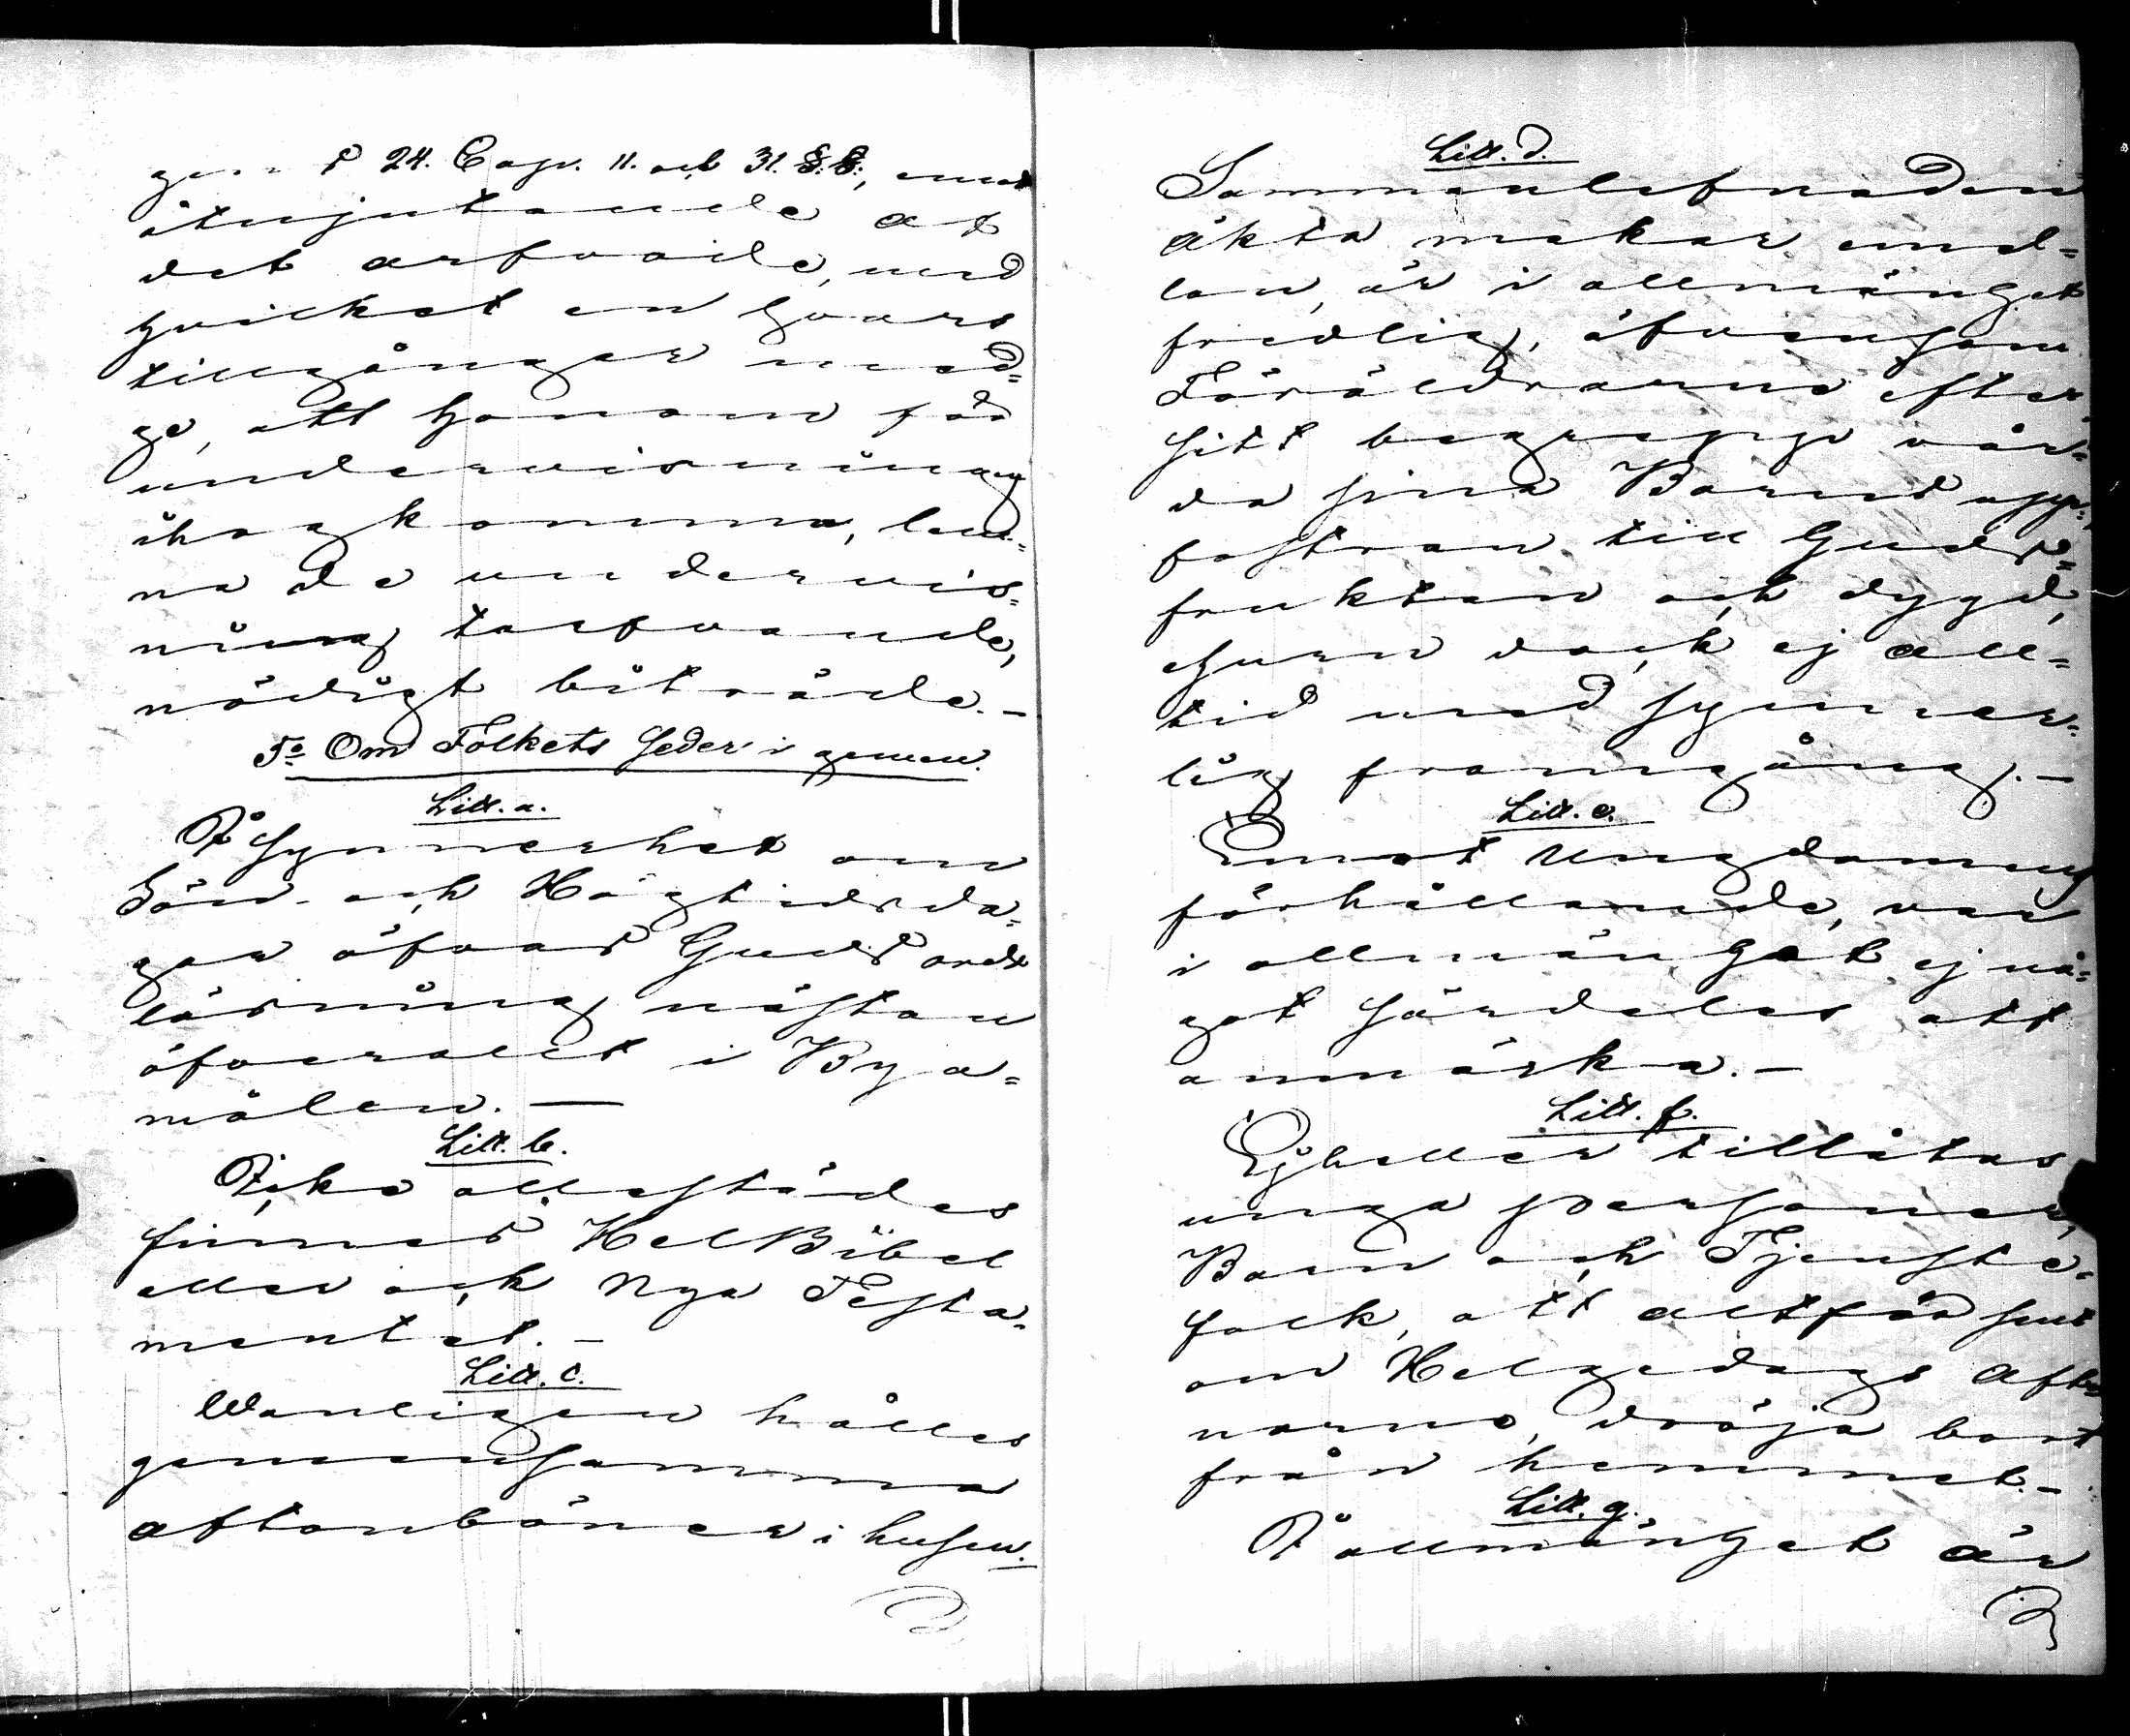 gens 24. Cap. 11. och 31. §.§., emot
åtnjutande af
det arfvode, med
hvilket en hvars
tillgångar med=
ge, att honom för
undervisning
ihogkomma, lem=
na de undervis=
ning tarfvande,
nödigt biträde.-
5o Om Folkets Seder i gemen.
Litt. a.
I synnerhet om
Sön- och Högtidsda=
gar öfvas Guds ords
läsning nästan
öfverallt i Bya=
målen. —
Litt. b.
Icke allestädes
finnes Hel Bibel
eller och Nya Testa=
mentet.-
Litt. c.
Wanligen hålles
gemensamma
aftonböner i husen.
Litt. d.
Sammanlefnaden
äkta makar emel=
lan, är i allmänhet
fredlig, äfvensom
Föräldrarne efter
sitt begrepp vår=
da sina Barns upp=
fostran till Guds=
fruktan och dygd,
ehuru dock ej all=
tid med synner=
lig framgång.-
Litt. e.
Emot Ungdomens
förhållande, var
i allmänhet ej nå=
got särdeles att
anmärka.-
Litt. f.
Ejheller tillåtas
unga personer,
Barn och Tjenste=
folk, att alltför sent
om Helgedags aft=
narne, dröja bort
från hemmet.-
Litt. g.
I allmänhet är